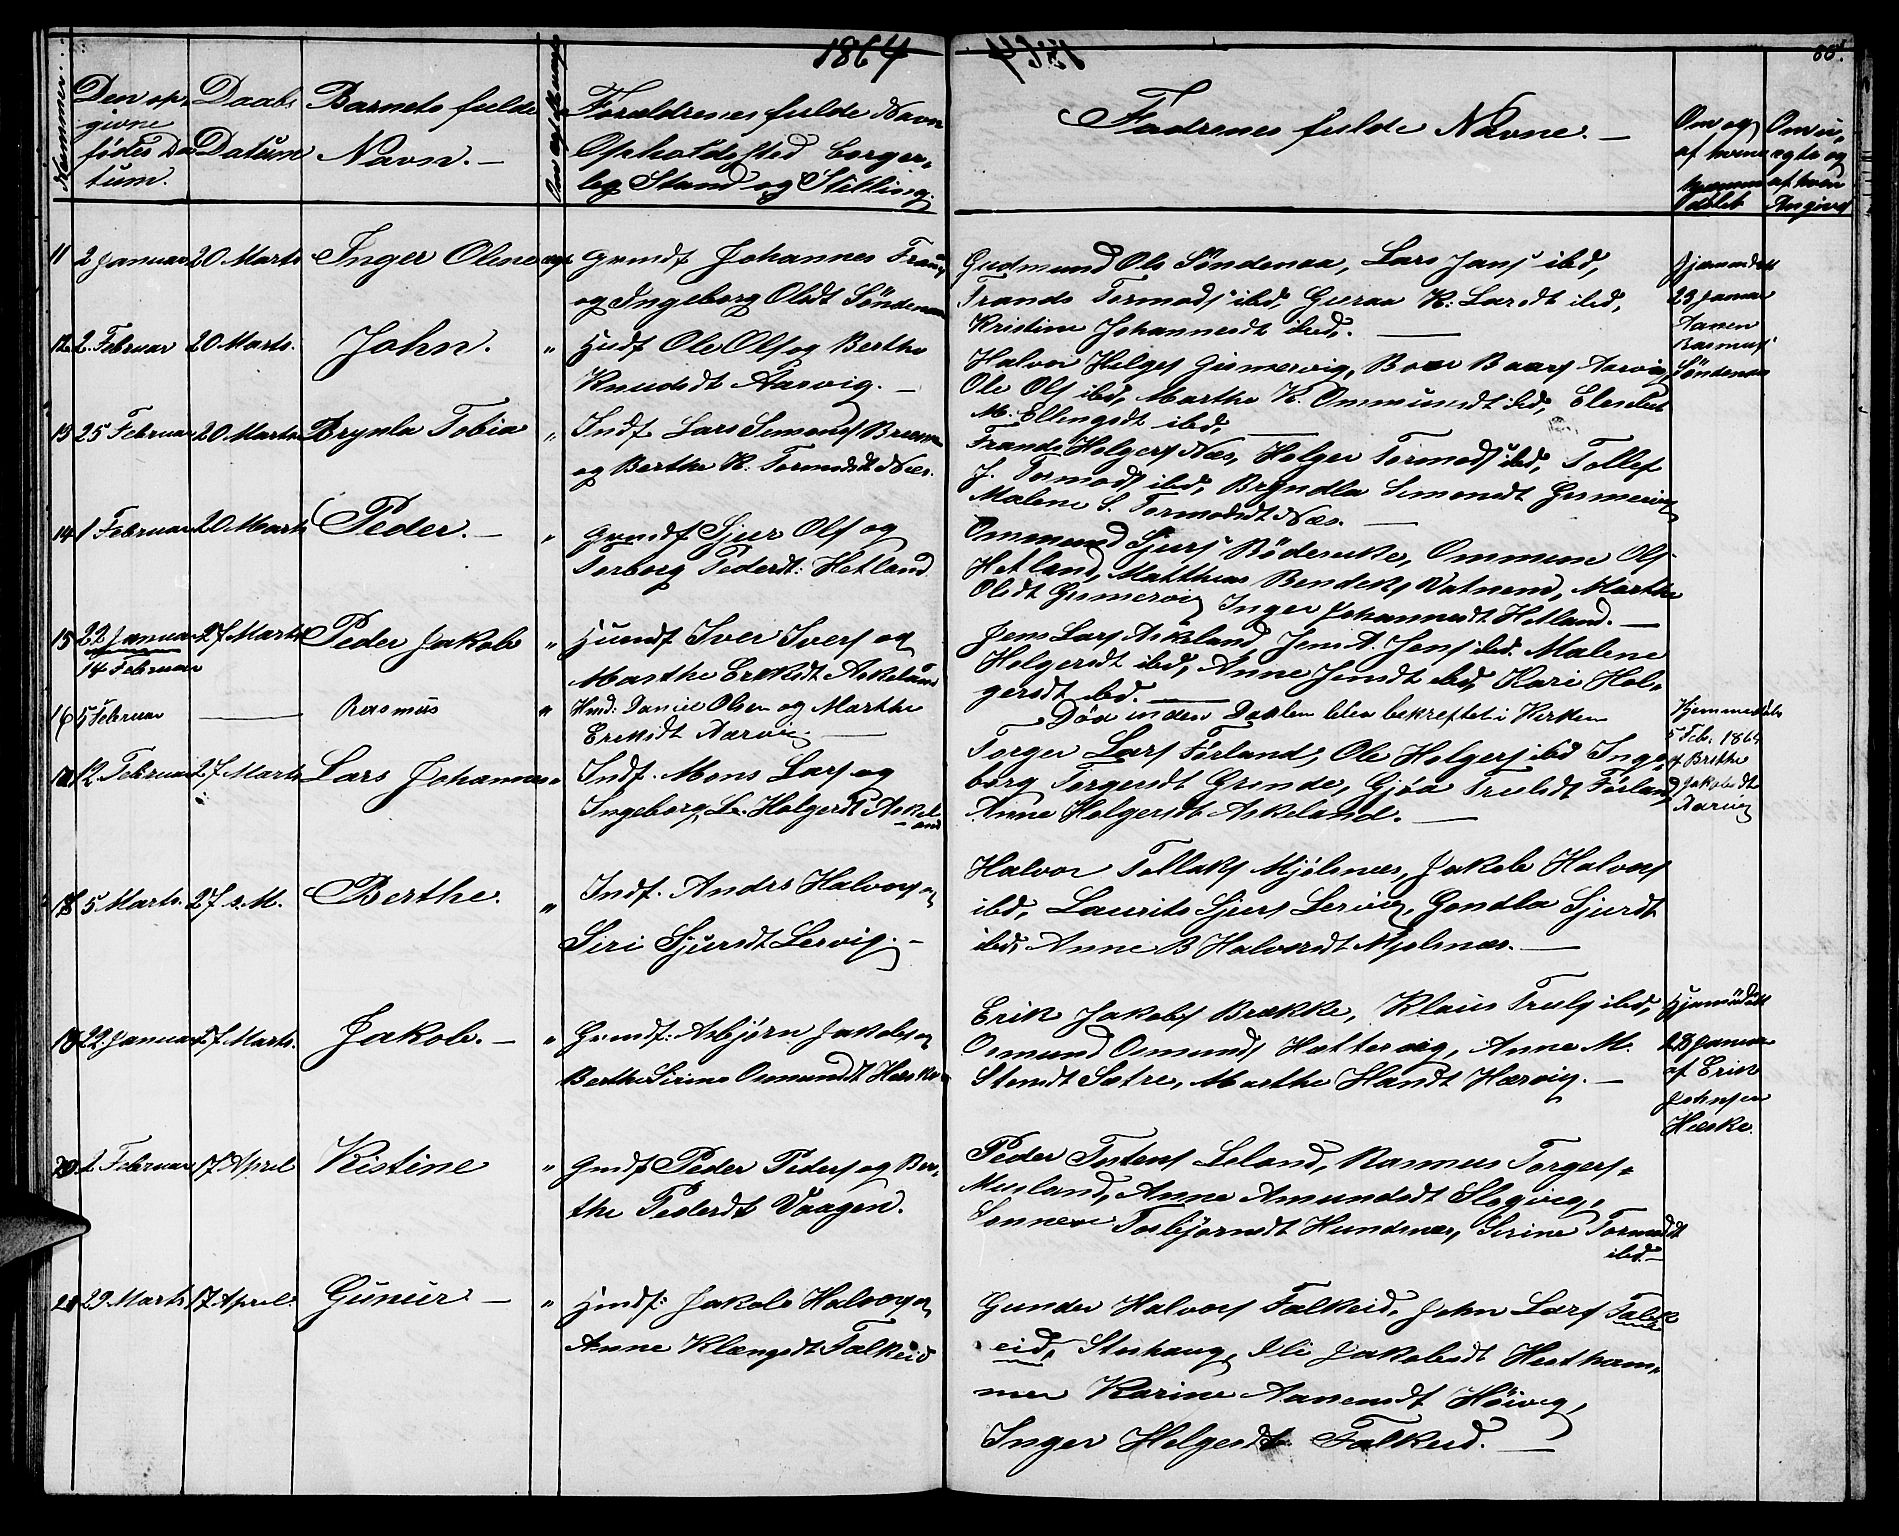 1864
88.
Nummer
Den op=
givne
födes Da
tum.
Daabs
Datum
Barnets fulde
Navn. —
Foraldrenes fulde Navn
Opholdssted borger=
leg Stand og Stilling.
Fadrenes fulde Navne. —
Om og
af hvem
hjemme
døbt
Om u,
egte og
af hvem
Angivet
11 2 Januar 20 Marts Inger Oline egte Grndf Johannes
og Ingeborg Olsdt Söndenaa
Gudmund Ols Söndenaa, Lars Jans ibd,
Trands Tormods ibd, Guroa K. Larsdt ibd,
Kristine Johannesdt ibd. —
Hjemmdöbt
23 Januar
Aanen
Rasmus
Söndenaa
12 2 Februar 20 Marts. John. " Husf Ole Ols og Berthe
Knudsdt Aarvig. —
Halvor Helges Gismervig, Baar Baars Aarvig
Ole Ols ibd, Marthe K. Ommundsdt ibd,
M. Ellingsdt ibd, —
13 25 Februar 20 Marts Brynla Tobia " Indf. Lars Simons
og Berthe K. Tormodsdt Næs.
Trands Holgers Næs, Holger Tormods ibd, Tollef
J. Tormods ibd, Bryndla Simonsdt Gismervig
Malene S. Tormodsdt Næs. —
14 1 Februar 20 Marts Peder. — " Grndf Sjur Ols og
Torborg Pedersdt: Hetland
Ommund Sjurs Rödseike, Ommund Ols
Hetland, Matthias Bendiks Vatnend, Marthe
Olsdt Gismervig Inger Johannesdt Hetland. —
15 22 Januar 27 Marts Peder Jakob " Husmdf Iver Ivers og
14 Februar
Marthe Eriksdt Askeland
Jens Lars Askeland, Jens A. Jens ibd. Malene
Holgersdt ibd, Anne Jensdt ibd, Kari Hol=
gersdt ibd. —
16 5 Februar — Rasmus " Hmd: Daniel Olsen og Marthe
Eriksdt Aarvig. —
Död inden Daaben blev bekreftet i Kirken
Hjemmedöbt
5 Feb. 1864
af Brithe
Jakobsdt
Aarvig
12 Februar 27 Marts Lars Johannes " Indf. Mons Lars og
Ingeborg L. Holgersdt Askel
and
Torger Lars Förland, Ole Holgers ibd Inge
borg Torgersdt Grinde, Gjöa Trulsdt Förland
Anne Holgersdt Askeland. —
18 5 Marts. 27 s. M. Berthe. " Indf. Andrs Halvors og
Siri Sjursdt Lervig. —
Halvor Tollaks Mjölsnæs, Jakob Halvors
ibd, Laurits Sjurs Lervig, Gondla Sjursdt
ibd, Anne B Halvorsdt Mjölsnæs. —
19 22. Januar 27 Marts. Jakob. — " Grndf: Asbjørn Jakobs og
Berthe Sirine Osmundsdt Hæske
Erik Jakobs Brakke, Klaus Truls ibd,
Osmund Osmunds Hattervig, Anne M.
Stensdt Sætre, Marthe Hansdt Hærvig. —
Hjemdöbt
28 Januar
af Erik
Johnsen
Hæske.
20 2 Februar 17 April Kistine " Gmdf Peder Peders og Ber,
the Pedersdt Vaagen.
Peder Tostens Leland, Rasmus Torgers=
Musland, Anne Amundsdt Slogvig,
Sonneve Torbjörnsdt Hundsnes, Serine Tormodsdt
ibd—
21 29 Marts 17 April. Gunur. — " Hmdf: Jakob Halvors og
Anne Klængsdt Falkeid
Gunder Halvors Falkeid, John Lars Falk
eid, Steshaug, Ili Jakobsdt Hestham,
mer Karine Aanensdt Höivig,
Inger Helgesdt Falkeid. —